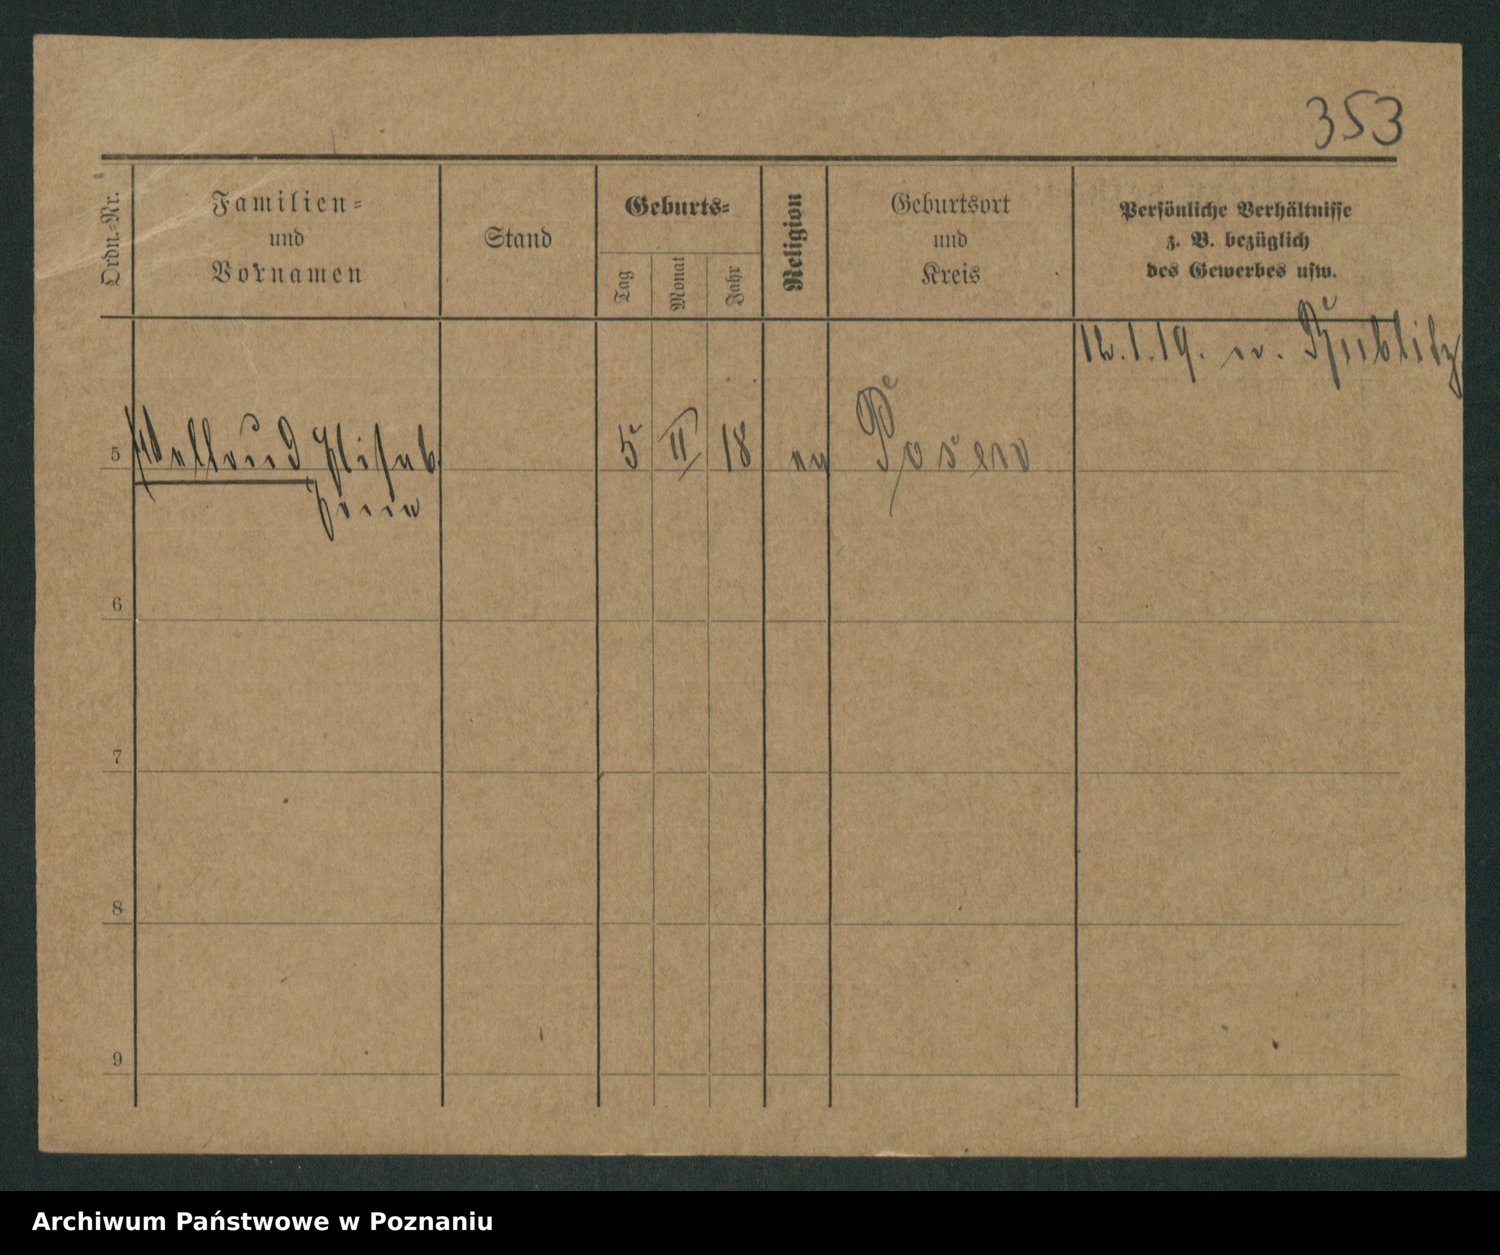 353
Ordn.-Nr.
Familien-
und
Vornamen
Stand
Geburts-
Tag
Monat
Jahr
Religion
Geburtsort
und
Kreis
Persönliche Verhältnisse
z. B. bezüglich
des Gewerbes usw.
12.1.19. n.
5 5 II 18 Posen
6
7
8
9
Archiwum Państwowe w Poznaniu